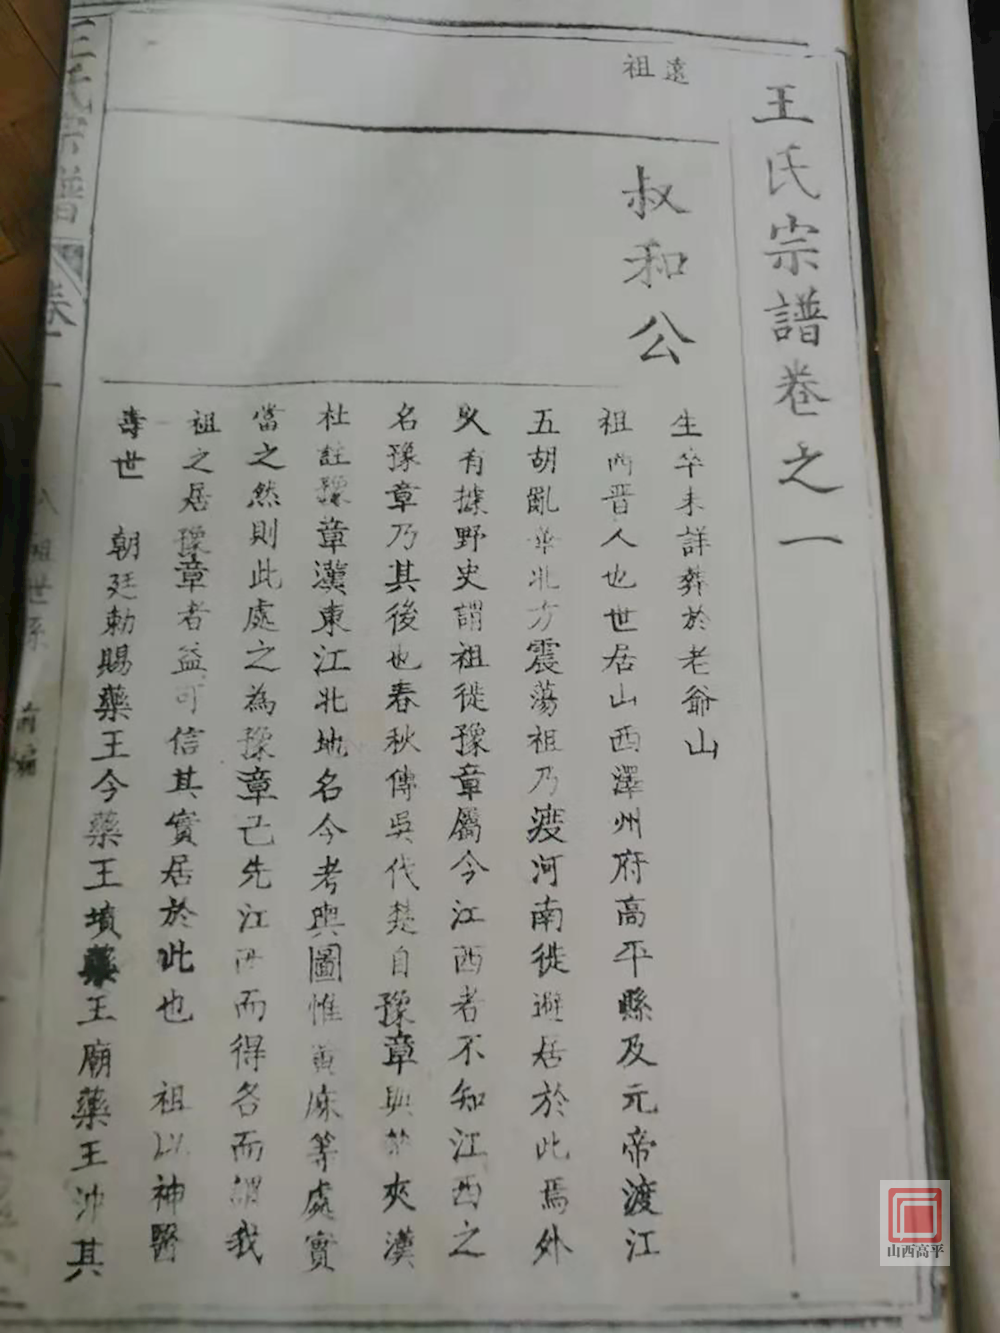 王氏宗譜卷之一
遠祖
叔和公
生卒未詳葬於老爺山
祖西晋人也世居山西澤州府高平縣及元帝渡江
五胡亂華北方震蕩祖乃渡河南徙避居於此焉外
有據野史謂祖徙豫章屬今江西者不知江西之
名豫章乃其後也春秋傳吳伐楚自豫章與楚夾漢
杜註豫章漢東江北地名今考輿圖惟黃麻等處實
當之然則此處之為豫章己先江西而得名而謂我
祖之居豫章者益可信其實居於此也 祖以神醫
壽世 朝廷勅賜藥王今藥王墳藥王廟藥王冲其
王氏宗譜
卷一
祖世系